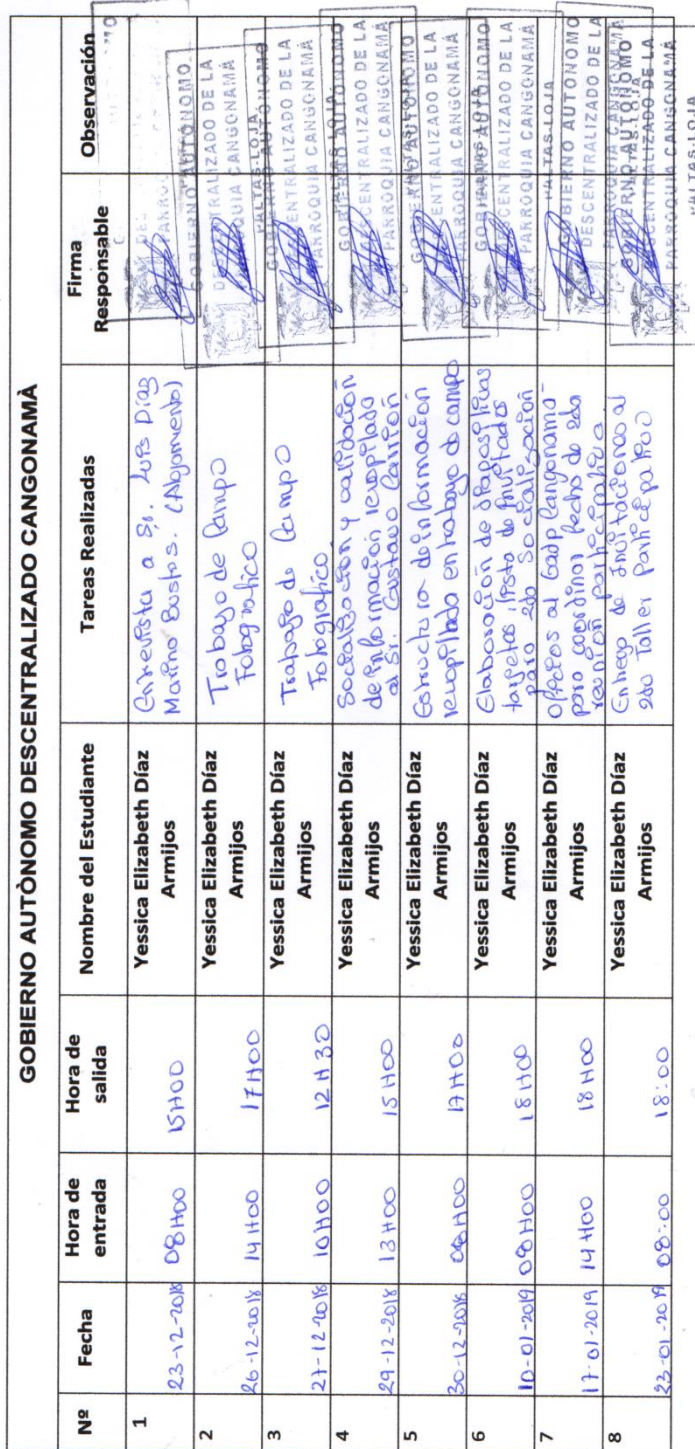 GOBIERNO AUTÒNOMO DESCENTRALIZADO CANGONAMÀ
Nº Fecha Hora de entrada Hora de salida Nombre del Estudiante Tareas Realizadas Firma Responsable Observación
1 23-12-2018 08H00 15H00 Yessica Elizabeth Díaz Armijos
Entrevista a Sr. Luis Díaz
Marino Bustos. (Abjomento)
2 26-12-2018 14H00 17H00 Yessica Elizabeth Díaz Armijos
Trabajo de Campo
Fotografico
GOBIERNO AUTÓNOMO
DESCENTRALIZADO DE LA
PARROQUIA CANGONAMÁ
PALTAS-LOJA
3 27-12-2018 10H00 12H30 Yessica Elizabeth Díaz Armijos
Trabajo de Campo
Fotografico.
GOBIERNO AUTÓNOMO
DESCENTRALIZADO DE LA
PARROQUIA CANGONAMÁ
4 29-12-2018 13H00 15H00 Yessica Elizabeth Díaz Armijos
Socialización y validación
de información recopilada
al Sr. Gustavo Carrión
GOBIERNO AUTÓNOMO
DESCENTRALIZADO DE LA
PARROQUIA CANGONAMÁ
5 30-12-2018 08H00 17H00 Yessica Elizabeth Díaz Armijos
Estructura de información
recopilada en trabajo de campo
GOBIERNO AUTÓNOMO
DESCENTRALIZADO DE LA
PARROQUIA CANGONAMÁ
6 10-01-2019 08H00 18H00 Yessica Elizabeth Díaz Armijos
Elaboración de diapositivas
tarjetas, lista de invitados
para 2do Socialización
GOBIERNO AUTÓNOMO
DESCENTRALIZADO DE LA
PARROQUIA CANGONAMÁ
PALTAS-LOJA
7 17-01-2019 14H00 18H00 Yessica Elizabeth Díaz Armijos
Oficios al Gadp Cangonama-
para coordinar fecha de 2da
reunión participativa
GOBIERNO AUTONOMO
DESCENTRALIZADO DE LA
PARROQUIA CANGONAMÁ
8 23-01-2019 08:00 18:00 Yessica Elizabeth Díaz Armijos
Entrega de Invitaciones al
2do Taller Participativo
GOBIERNO AUTÓNOMO
DESCENTRALIZADO DE LA
PARROQUIA CANGONAMÁ
PALTAS-LOJA